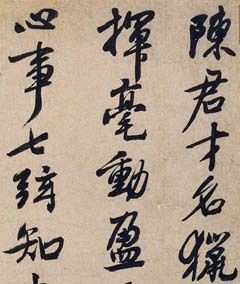 陳君才名獵
揮毫動盈
心事七弦知